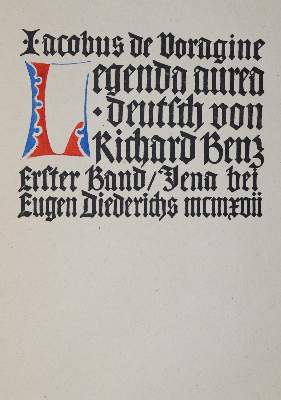 Iacobus de Voragine
Legenda aurea
· deutsch von
Richard Benz
Erster Band / Jena bei
Eugen Diederichs mcmxvii